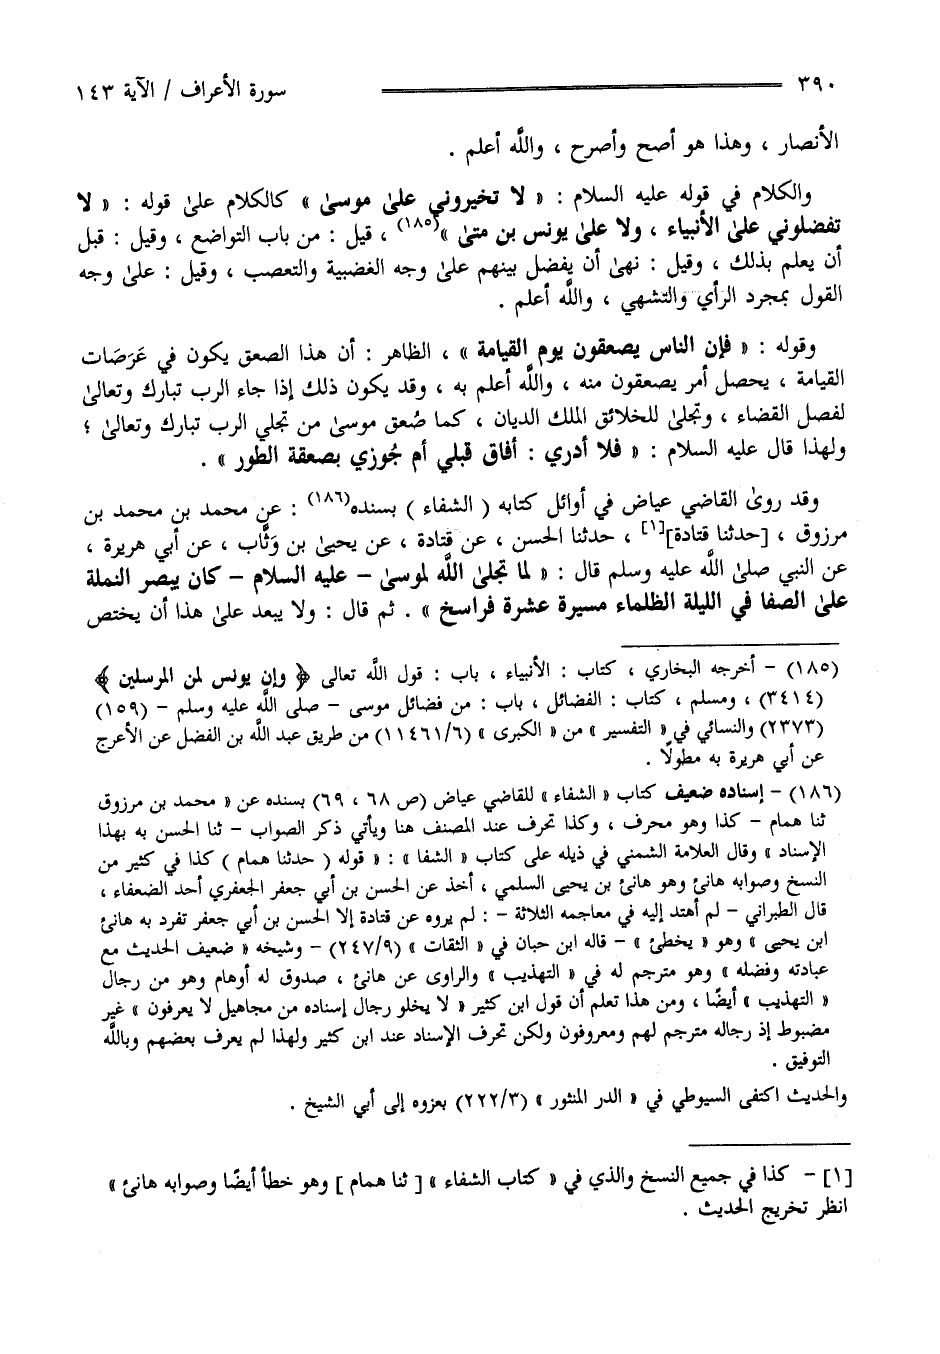 ٣٩٠ سورة الأعراف / الآية ١٤٣
الأنصار ، وهذا هو أصح وأصرح ، واللَّه أعلم .
والكلام في قوله عليه السلام : « لا تخيروني علىٰ موسىٰ » كالكلام علىٰ قوله : « لا
تفضلوني علىٰ الأنبياء ، ولا علىٰ يونس بن متىٰ »(١٨٥) ، قيل : من باب التواضع ، وقيل : قبل
أن يعلم بذلك ، وقيل : نهىٰ أن يفضل بينهم علىٰ وجه الغضبية والتعصب ، وقيل : علىٰ وجه
القول بمجرد الرأي والتشهي ، واللَّه أعلم .
وقوله : « فإن الناس يصعقون يوم القيامة » ، الظاهر : أن هذا الصعق يكون في عَرَصَات
القيامة ، يحصل أمر يصعقون منه ، واللَّه أعلم به ، وقد يكون ذلك إذا جاء الرب تبارك وتعالىٰ
لفصل القضاء ، وتجلىٰ للخلائق الملك الديان ، كما صُعق موسىٰ من تجلي الرب تبارك وتعالىٰ ؛
ولهذا قال عليه السلام : « فلا أدري : أفاق قبلي أم جُوزي بصعقة الطور » .
وقد روىٰ القاضي عياض في أوائل كتابه ( الشفاء ) بسنده(١٨٦) : عن محمد بن محمد بن
مرزوق ، [حدثنا قتادة][١] ، حدثنا الحسن ، عن قتادة ، عن يحيىٰ بن وَثَّاب ، عن أبي هريرة ،
عن النبي صلىٰ اللَّه عليه وسلم قال : « لما تجلىٰ اللَّه لموسىٰ - عليه السلام - كان يبصر النملة
علىٰ الصفا في الليلة الظلماء مسيرة عشرة فراسخ » . ثم قال : ولا يبعد علىٰ هذا أن يختص
(١٨٥) - أخرجه البخاري ، كتاب : الأنبياء ، باب : قول اللَّه تعالى ﴿ وإن يونس لمن المرسلين ﴾
(٣٤١٤) ، ومسلم ، كتاب : الفضائل ، باب : من فضائل موسى - صلى اللَّه عليه وسلم - (١٥٩)
(٢٣٧٣) والنسائي في « التفسير » من « الكبرى » (١١٤٦١/٦) من طريق عبد اللَّه بن الفضل عن الأعرج
عن أبي هريرة به مطولًا .
(١٨٦) - إسناده ضعيف كتاب « الشفاء » للقاضي عياض (ص ٦٨ ، ٦٩) بسنده عن « محمد بن مرزوق
ثنا همام - كذا وهو محرف ، وكذا تحرف عند المصنف هنا ويأتي ذكر الصواب - ثنا الحسن به بهذا
الإسناد » وقال العلامة الشمني في ذيله على كتاب « الشفا » : « قوله ( حدثنا همام ) كذا في كثير من
النسخ وصوابه هانئ وهو هانئ بن يحيى السلمي ، أخذ عن الحسن بن أبي جعفر الجعفري أحد الضعفاء ،
قال الطبراني - لم أهتد إليه في معاجمه الثلاثة - : لم يروه عن قتادة إلا الحسن بن أبي جعفر تفرد به هانئ
ابن يحيى » وهو « يخطئ » - قاله ابن حبان في « الثقات » (٢٤٧/٩) - وشيخه « ضعيف الحديث مع
عبادته وفضله » وهو مترجم له في « التهذيب » والراوى عن هانئ ، صدوق له أوهام وهو من رجال
« التهذيب » أيضًا ، ومن هذا تعلم أن قول ابن كثير « لا يخلو رجال إسناده من مجاهيل لا يعرفون » غير
مضبوط إذ رجاله مترجم لهم ومعروفون ولكن تحرف الإسناد عند ابن كثير ولهذا لم يعرف بعضهم وباللَّه
التوفيق .
والحديث اكتفى السيوطي في « الدر المنثور » (٢٢٢/٣) بعزوه إلى أبي الشيخ .
[١] - كذا في جميع النسخ والذي في « كتاب الشفاء » [ ثنا همام ] وهو خطأ أيضًا وصوابه هانئ »
انظر تخريج الحديث .